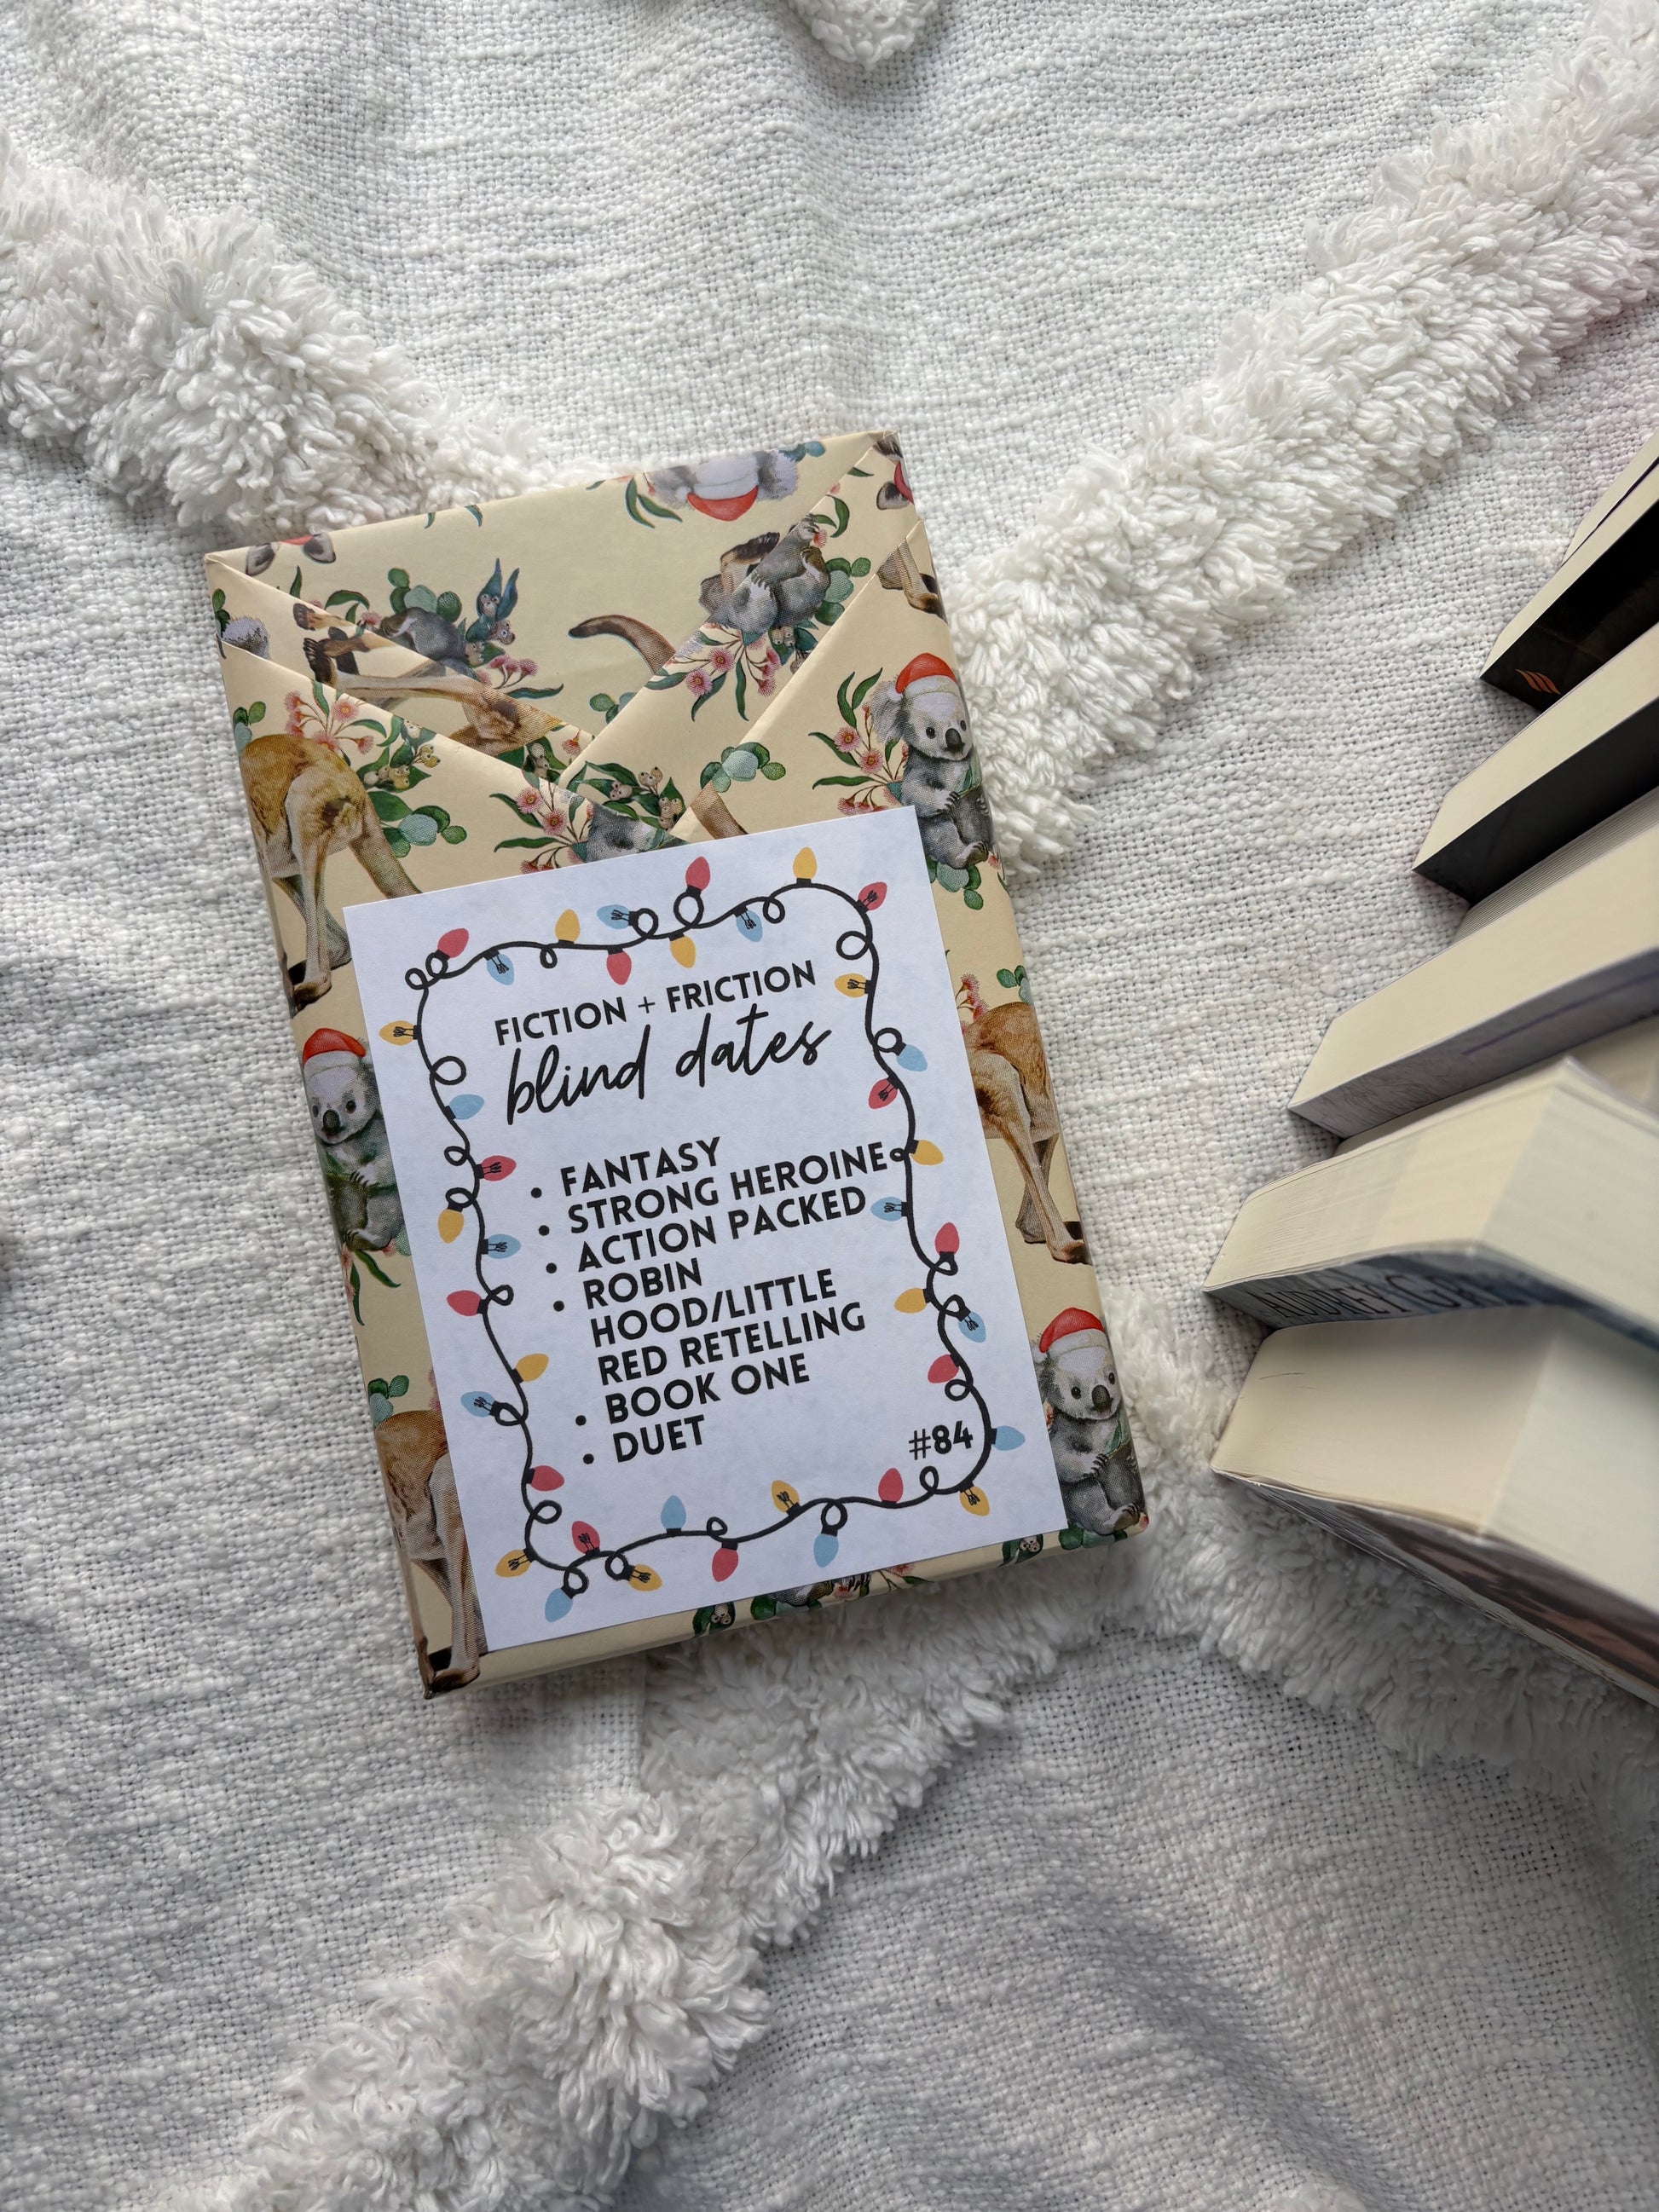 FICTION + FRICTION
blind dates
• FANTASY
• STRONG HEROINE
• ACTION PACKED
• ROBIN
HOOD/LITTLE
RED RETELLING
• BOOK ONE
• DUET
#84
AUDREY